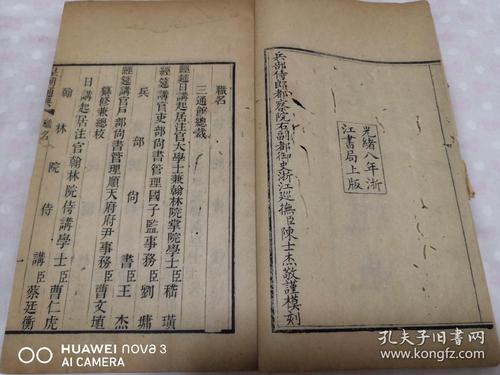 光緒八年浙
江書局上版
兵部侍郎都察院右副都御史浙江巡撫臣陳士杰敬謹模刻
職名
三通館總裁
經筵日講起居注官大學士兼翰林院掌院學士臣嵇璜
經筵講官吏部尚書管理國子監事務臣劉墉
兵部尚書臣王杰
經筵講官戶部尚書管理順天府府尹事務臣曹文埴
纂修兼總校
日講起居注官翰林院侍講學士臣曹仁虎
翰林院侍講臣蔡廷衡
一
HUAWEI nova 3
AI CAMERA
孔夫子旧书网
www.kongfz.com